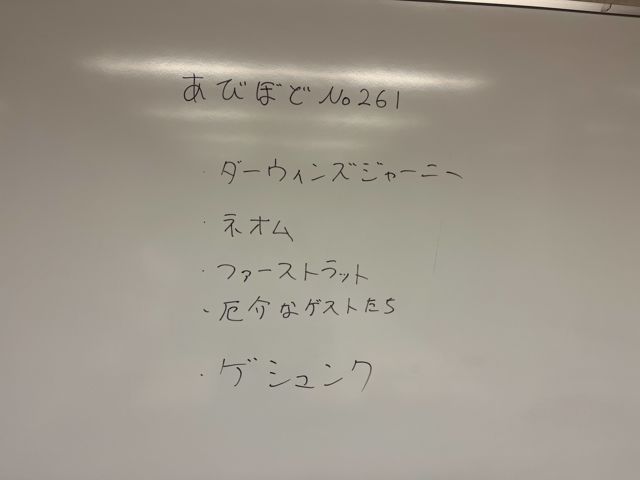 あびぼど No261
・ダーウィンズジャーニー
・ネオム
・ファーストラット
・厄介なゲストたち
・ゲシュンク